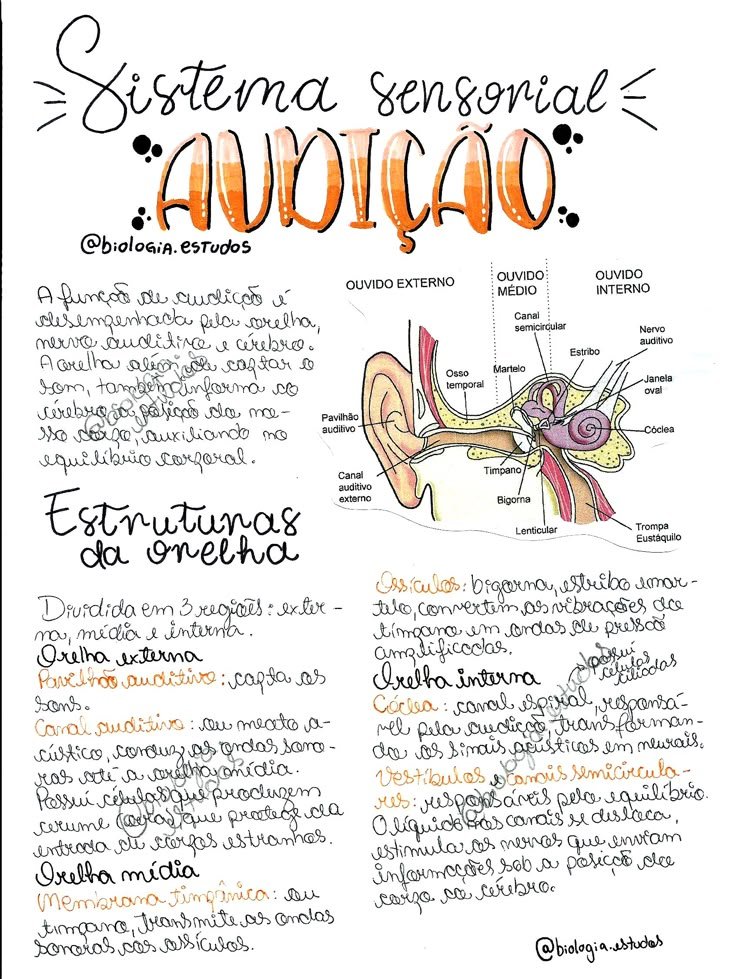 Sistema sensorial
AUDIÇÃO
@biologia.estudos
A função de audição é
desempenhada pela orelha,
nervo auditivo e cérebro.
A orelha além de captar o
som, também informa ao
cérebro a posição do no-
sso corpo, auxiliando no
equilíbrio corporal.
OUVIDO EXTERNO
OUVIDO
MÉDIO
OUVIDO
INTERNO
Canal
semicircular
Nervo
auditivo
Estribo
Martelo
Osso
temporal
Janela
oval
Pavilhão
auditivo
Cóclea
Timpano
Canal
auditivo
externo
Bigorna
Lenticular
Trompa
Eustáquilo
Estruturas
da orelha
Dividida em 3 regiões: exter-
na, média e interna.
Orelha externa
Pavilhão auditivo: capta os
sons.
Canal auditivo: ou meato a-
cústico, conduz as ondas sono-
ras até a orelha média.
Possuí células que produzem
cerume (cera) que protege da
entrada de corpos estranhos.
Orelha média
Membrana timpânica: ou
tímpano, transmite as ondas
sonoras aos ossículos.
Ossículos: bigorna, estribo e mar-
telo, convertem as vibrações do
tímpano em ondas de pressão
amplificadas.
Orelha interna
possuí
células
ciliadas
Cóclea: canal espiral, responsá-
vel pela audição, transforman-
do os sinais acústicos em neurais.
Vestíbulos e canais semicircula-
res: responsáveis pelo equilíbrio.
O líquido nos canais se desloca,
estimula os nervos que enviam
informações sob a posição do
corpo ao cérebro.
@biologia.estudos